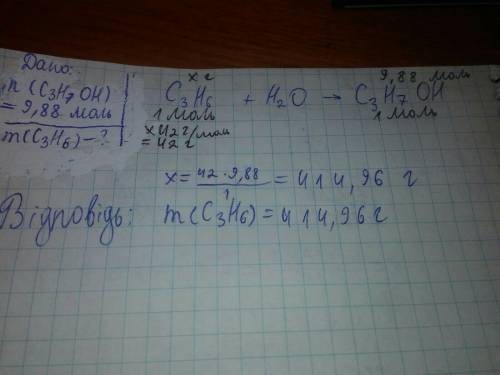 Дано:
n(C₃H₇OH)
= 9,88 моль
m(C₃H₆) – ?
x г 9,88 моль
C₃H₆ + H₂O → C₃H₇OH
1 моль 1 моль
x 42 г/моль
= 42 г
x = 42 · 9,88 / 1 = 414,96 г
Відповідь: m(C₃H₆) = 414,96 г